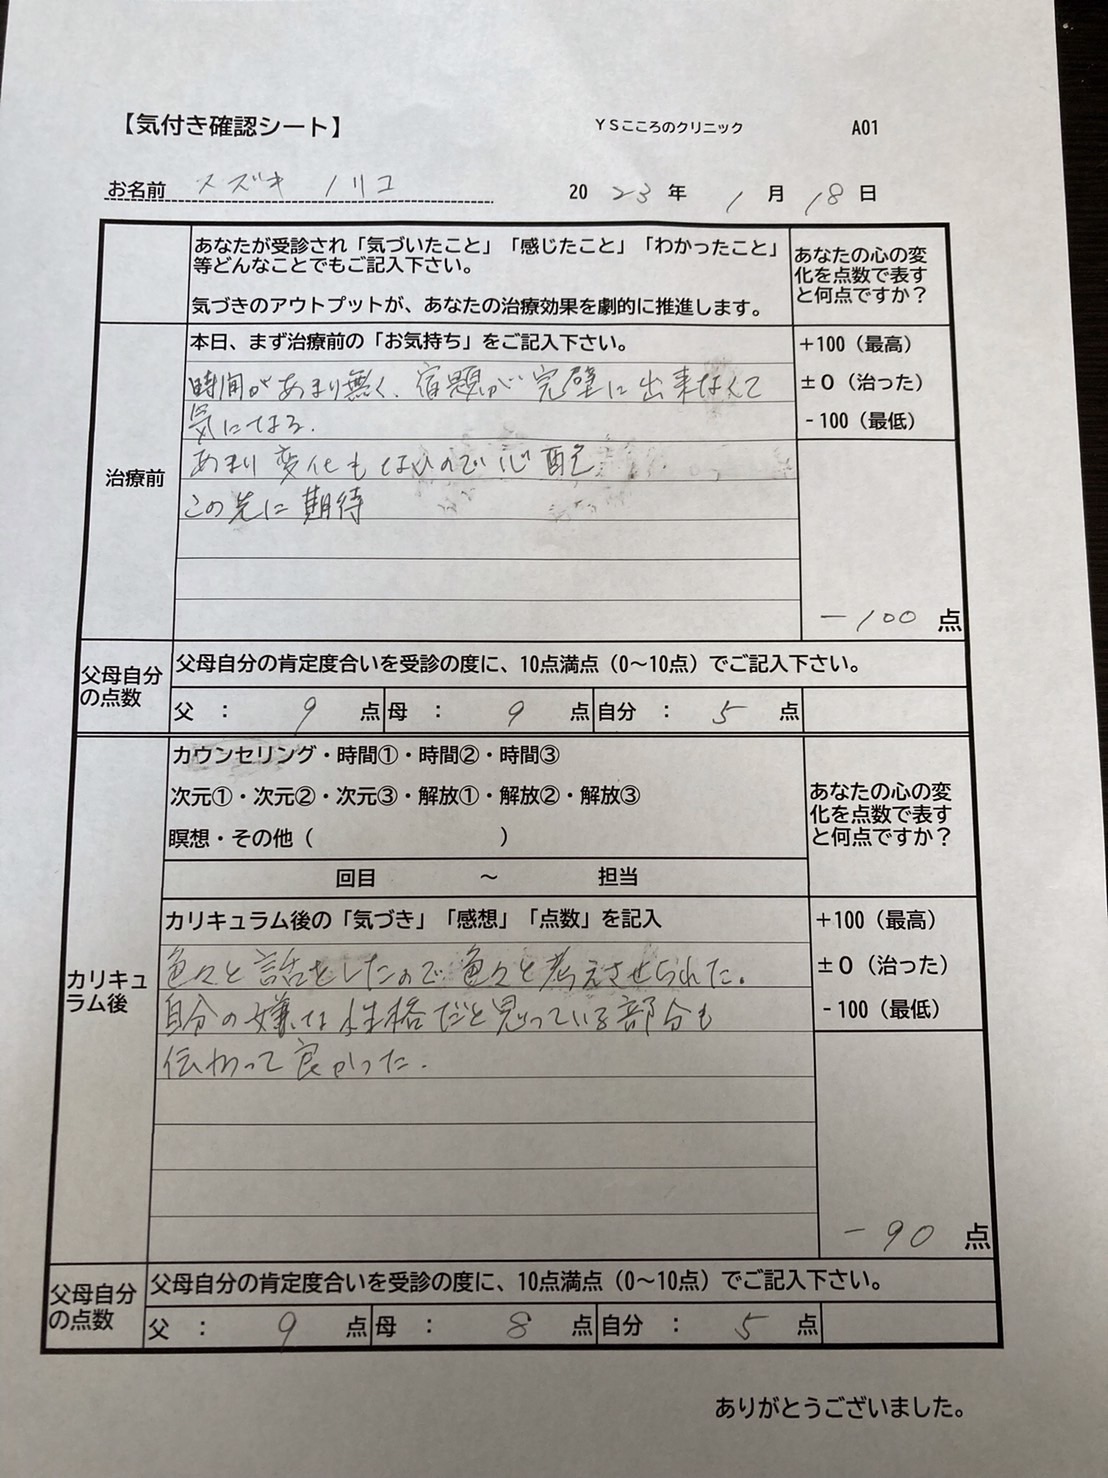 【気付き確認シート】 YSこころのクリニック A01
お名前 スズキ ノリコ 2023年 1月 18日
あなたが受診され「気づいたこと」「感じたこと」「わかったこと」
等どんなことでもご記入下さい。
気づきのアウトプットが、あなたの治療効果を劇的に推進します。
あなたの心の変
化を点数で表す
と何点ですか？
治療前
本日、まず治療前の「お気持ち」をご記入下さい。
時間があまり無く、宿題が完璧に出来なくて
気になる.
あまり変化もないので心配
この先に期待
+100（最高）
±0（治った）
-100（最低）
-100 点
父母自分
の点数
父母自分の肯定度合いを受診の度に、10点満点（0～10点）でご記入下さい。
父 ： 9 点 母 ： 9 点 自分 ： 5 点
カウンセリング・時間①・時間②・時間③
次元①・次元②・次元③・解放①・解放②・解放③
瞑想・その他（ ）
回目 ～ 担当
あなたの心の変
化を点数で表す
と何点ですか？
カリキュ
ラム後
カリキュラム後の「気づき」「感想」「点数」を記入
色々と話をしたので色々と考えさせられた.
自分の嫌な性格だと思っている部分も
伝わって良かった.
+100（最高）
±0（治った）
-100（最低）
-90 点
父母自分
の点数
父母自分の肯定度合いを受診の度に、10点満点（0～10点）でご記入下さい。
父 ： 9 点 母 ： 8 点 自分 ： 5 点
ありがとうございました。